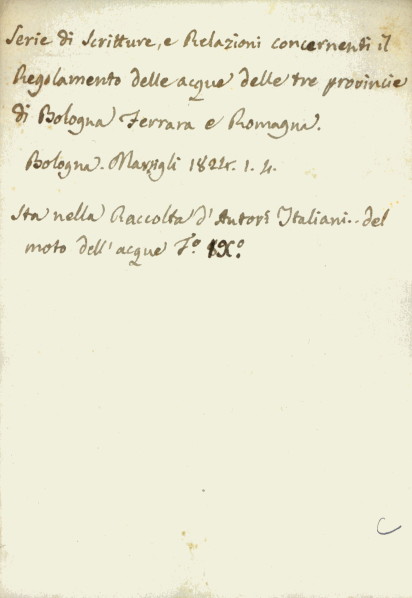 Serie di Scritture, e Relazioni concernenti il
Regolamento delle acque delle tre provincie
di Bologna Ferrara e Romagna.
Bologna. Marsigli 1824. 1. 4.
Sta nella Raccolta d'Autori Italiani.. del
moto dell'acque T.º IXº
C